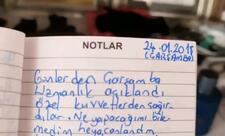 NOTLAR
24.01.2018
(ÇARŞAMBA)
Günlerden Çarşamba
Uzmanlık açıklandı
özel kuvvetlerden çağır
dılar. Ne yapacağımı bile
medim heyecanlandım.